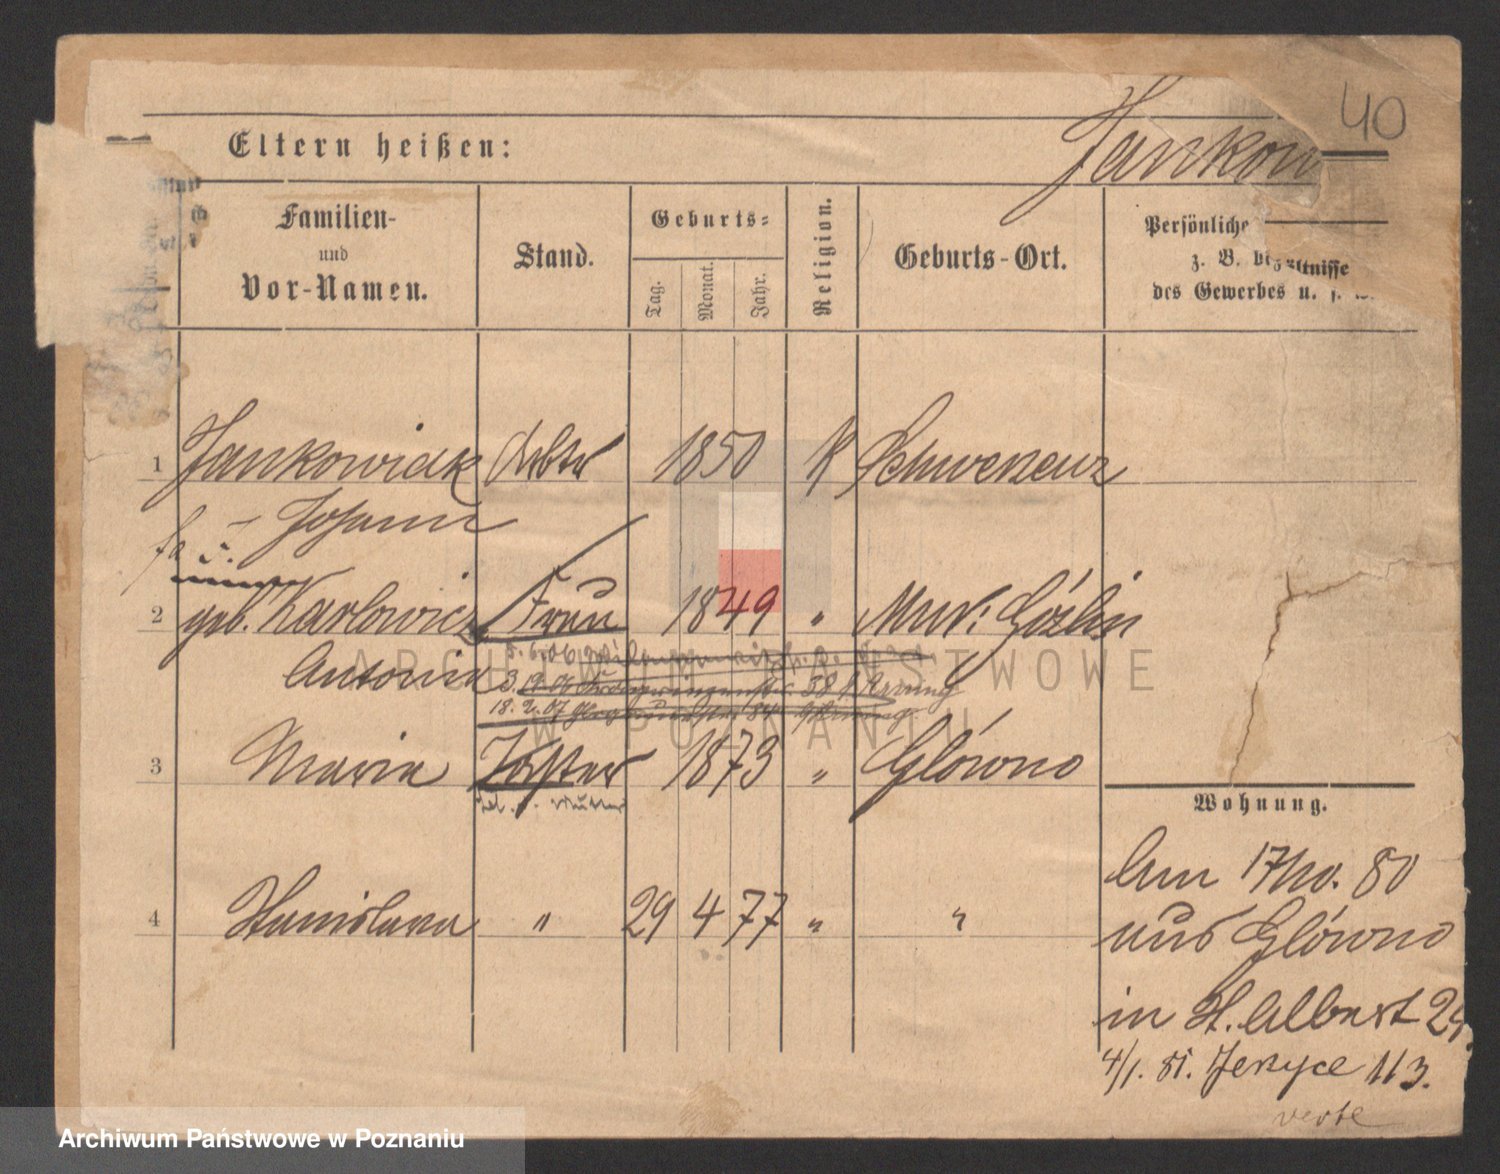 40
Jankow
Eltern heißen:
Familien-
und
Vor-Namen.
Stand.
Geburts-
Tag.
Monat.
Jahr.
Religion.
Geburts-Ort.
Persönliche
z. B.
des Gewerbes u. s. w.
1 Jankowiak Arbtr 1850 K Schwersenz
Johann
2 geb. Karlowicz Frau 1849 " Mur: Goslin
Antonie
3 Maria Tochter 1873 " Główno
4 Stanislawa " 29 4 77 " "
Wohnung.
Am 17/10. 80
aus Główno
in St. Adalbert 25.
4/1. 81. Jerzyce 113.
verte
ARCHIWUM PAŃSTWOWE
W POZNANIU
Archiwum Państwowe w Poznaniu